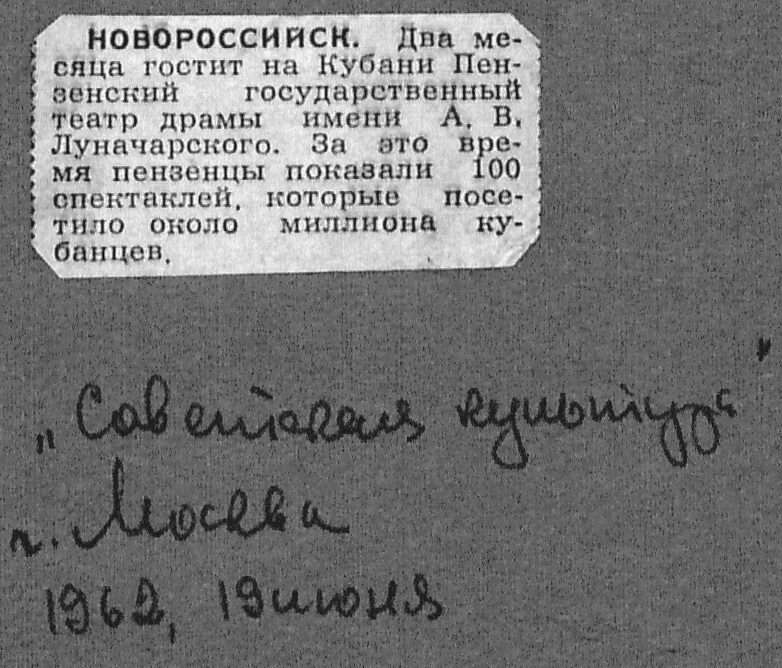 НОВОРОССИЙСК. Два ме-
сяца гостит на Кубани Пен-
зенский государственный
театр драмы имени А. В.
Луначарского. За это вре-
мя пензенцы показали 100
спектаклей, которые посе-
тило около миллиона ку-
банцев.
„Советская культура"
г. Москва
1962, 19 июня